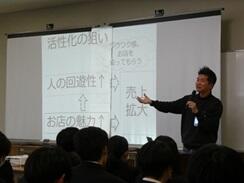 活性化の狙い
ワクワク感、
お店を
知ってもらう
人の回遊性↑
売上
拡大
お店の魅力↑